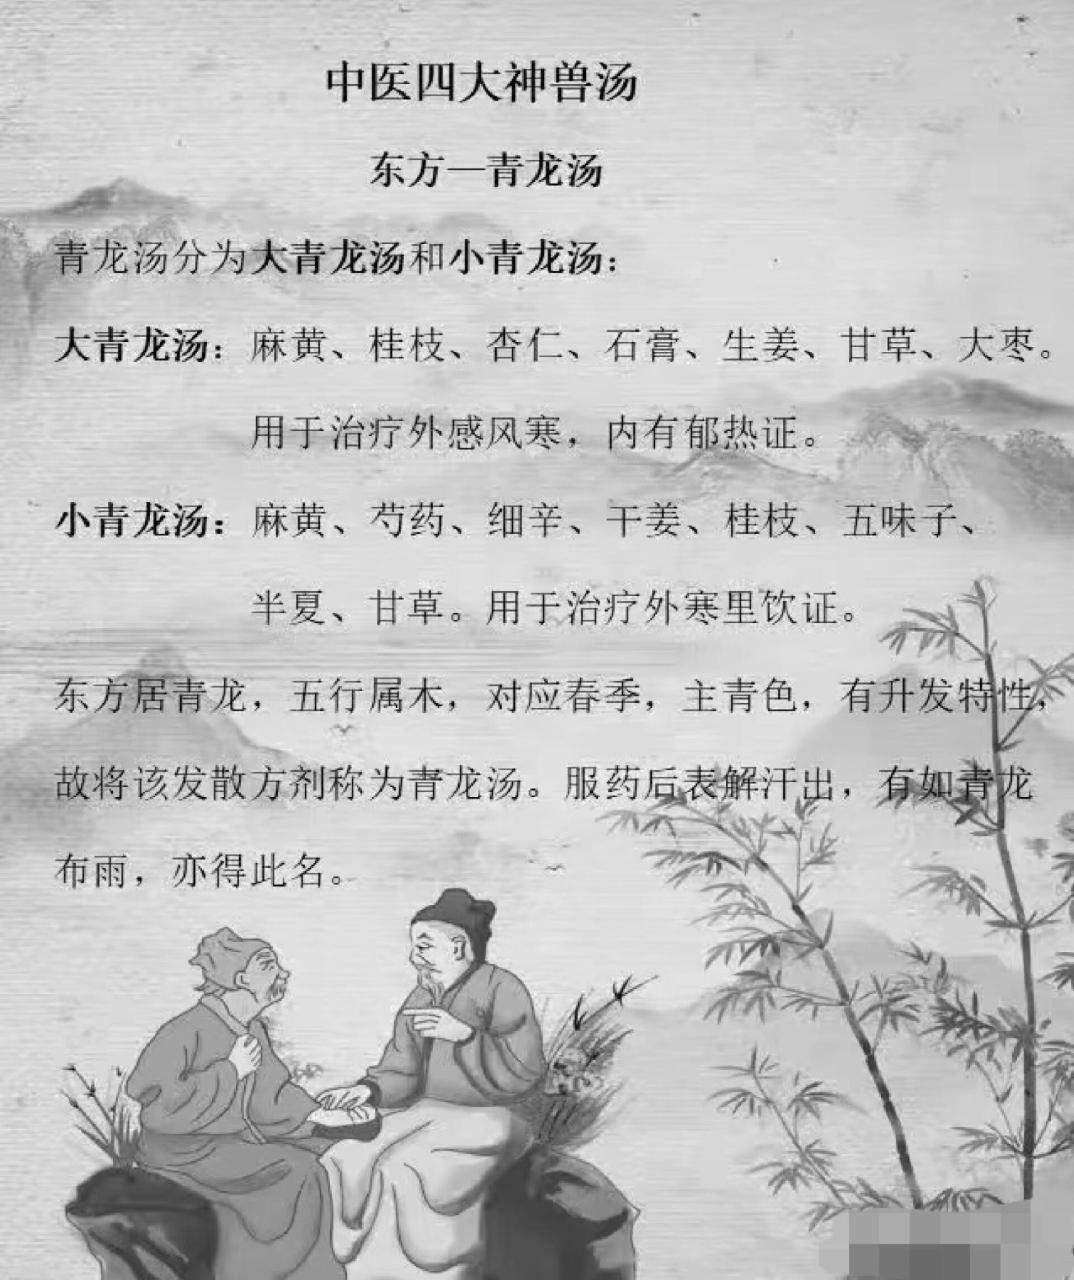 中医四大神兽汤
东方—青龙汤
青龙汤分为大青龙汤和小青龙汤：
大青龙汤：麻黄、桂枝、杏仁、石膏、生姜、甘草、大枣。
用于治疗外感风寒，内有郁热证。
小青龙汤：麻黄、芍药、细辛、干姜、桂枝、五味子、
半夏、甘草。用于治疗外寒里饮证。
东方居青龙，五行属木，对应春季，主青色，有升发特性，
故将该发散方剂称为青龙汤。服药后表解汗出，有如青龙
布雨，亦得此名。